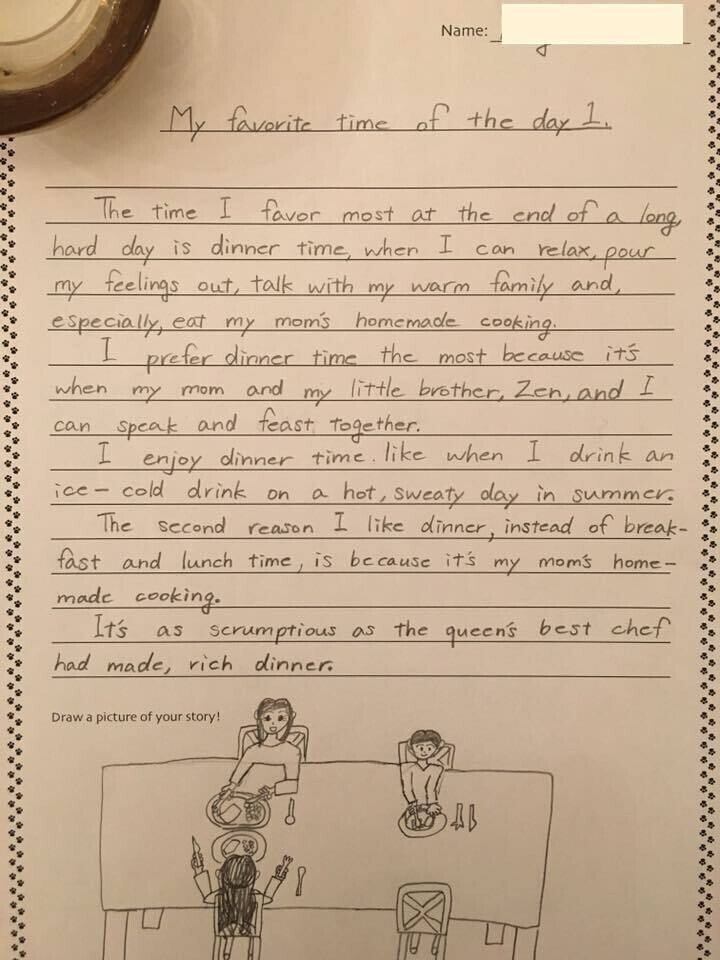 Name:
My favorite time of the day 1.
The time I favor most at the end of a long,
hard day is dinner time, when I can relax, pour
my feelings out, talk with my warm family and,
especially, eat my mom's homemade cooking.
I prefer dinner time the most because it's
when my mom and my little brother, Zen, and I
can speak and feast together.
I enjoy dinner time. like when I drink an
ice-cold drink on a hot, sweaty day in summer.
The second reason I like dinner, instead of break-
fast and lunch time, is because it's my mom's home-
made cooking.
It's as scrumptious as the queen's best chef
had made, rich dinner.
Draw a picture of your story!